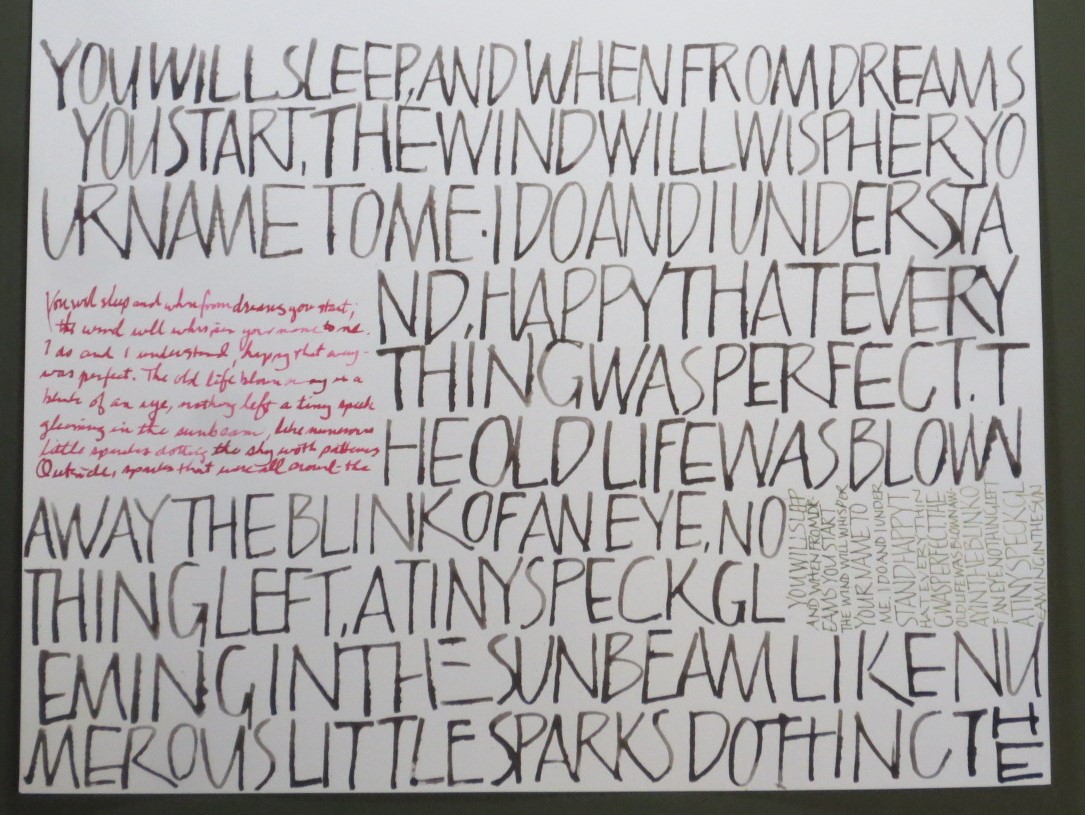 YOU WILL SLEEP, AND WHEN FROM DREAMS
YOU START, THE WIND WILL WISPHER YO
UR NAME TO ME. I DO AND I UNDERSTA
ND, HAPPY THAT EVERY
THING WAS PERFECT. T
HE OLD LIFE WAS BLOWN
AWAY THE BLINK OF AN EYE, NO
THING LEFT, A TINY SPECK GL
EMING IN THE SUNBEAM LIKE NU
MEROUS LITTLE SPARKS DOTTHING THE
You will sleep and when from dreams you start,
the wind will whisper your name to me.
I do and I understand, happy that
was perfect. The old life blown in a
blink of an eye, nothing left a tiny speck
gleaming in the sunbeam, like numerous
little sparks dotting the sky with patterns
Outside, sparks that were all around the
YOU WILL SLEEP
AND WHEN FROM DR
EAMS YOU START
THE WIND WILL WHISPER
YOUR NAME TO
ME, I DO AND UNDER
STAND HAPPY T
HAT EVERY THIN
G WAS PERFECT THE
OLD LIFE WAS BLOWN AW
AY IN THE BLINK O
F AN EYE NOTHING LEFT
A TINY SPECK GL
EAMING IN THE SUN